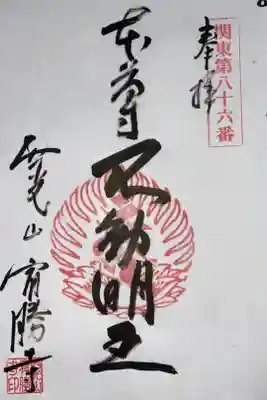 関東第八十六番
奉拝
本尊不動明王
西光山宥勝寺